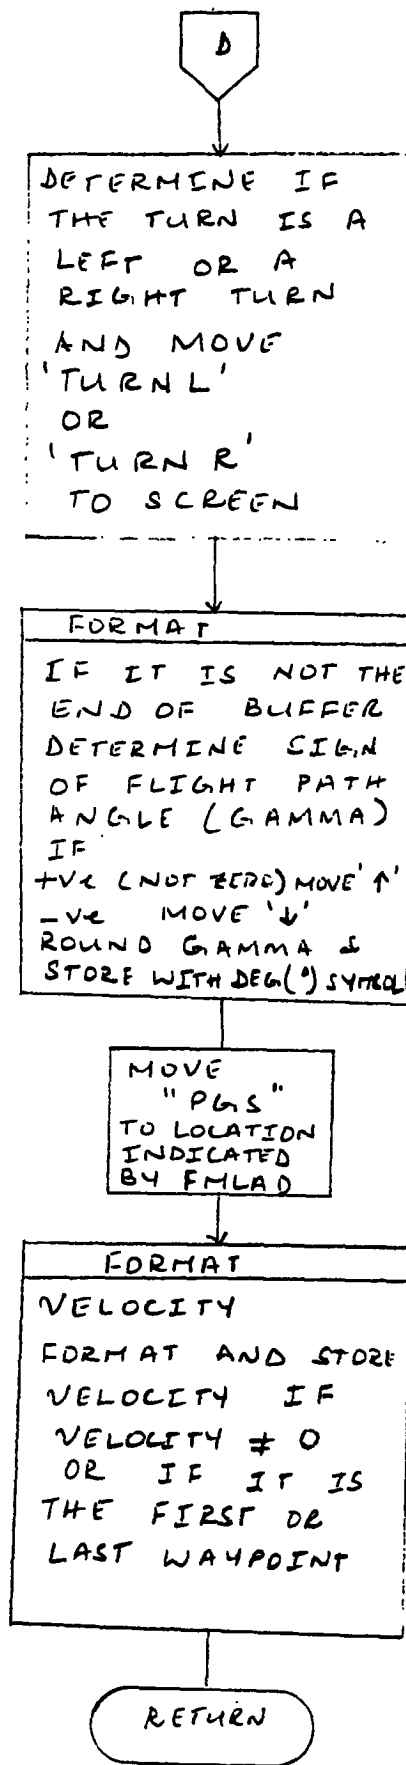 D
DETERMINE IF
THE TURN IS A
LEFT OR A
RIGHT TURN
AND MOVE
'TURN L'
OR
'TURN R'
TO SCREEN
FORMAT
IF IT IS NOT THE
END OF BUFFER
DETERMINE SIGN
OF FLIGHT PATH
ANGLE (GAMMA)
IF
+ve (NOT ZERO) MOVE '↑'
-ve MOVE '↓'
ROUND GAMMA &
STORE WITH DEG(°) SYMBOL
MOVE
"PGS"
TO LOCATION
INDICATED
BY FMLAD
FORMAT
VELOCITY
FORMAT AND STORE
VELOCITY IF
VELOCITY ≠ 0
OR IF IT IS
THE FIRST OR
LAST WAYPOINT
RETURN